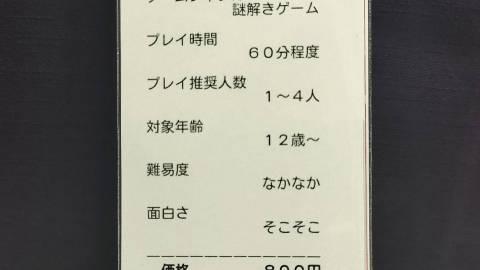 謎解きゲーム
プレイ時間
６０分程度
プレイ推奨人数
１～４人
対象年齢
１２歳～
難易度
なかなか
面白さ
そこそこ
価格
８９０円